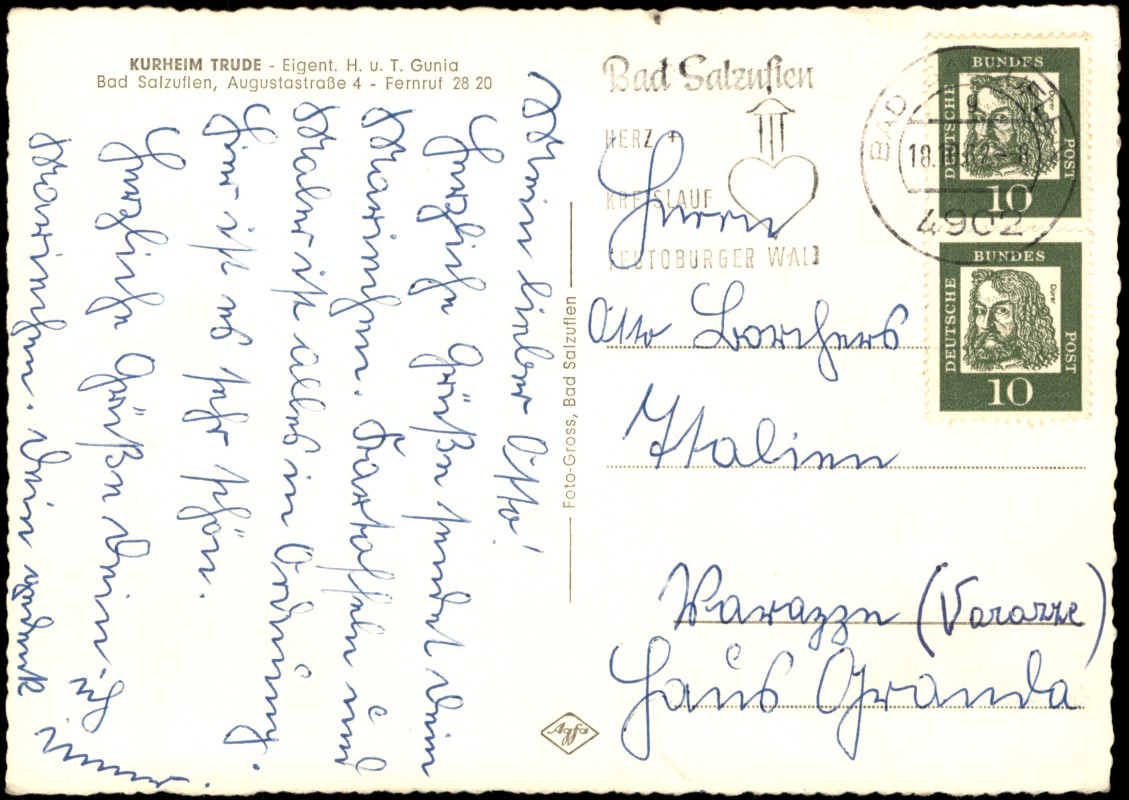 KURHEIM TRUDE - Eigent. H. u. T. Gunia
Bad Salzuflen, Augustastraße 4 - Fernruf 28 20
Mein lieber Otto!
Herzliche Grüße sendet Dein
Mariechen. Kartoffeln und
Maler ist alles in Ordnung.
Hier ist es sehr schön.
Herzliche Grüße Dein
Mariechen. Dein
immer
Foto-Gross, Bad Salzuflen
Agfa
Bad Salzuflen
HERZ +
KREISLAUF
TEUTOBURGER WALD
BAD
4902
BUNDES
DEUTSCHE
POST
Dürer
10
BUNDES
DEUTSCHE
POST
Dürer
10
Herrn
Otto Borchers
Italien
Warazze (Varazze)
Haus Granda